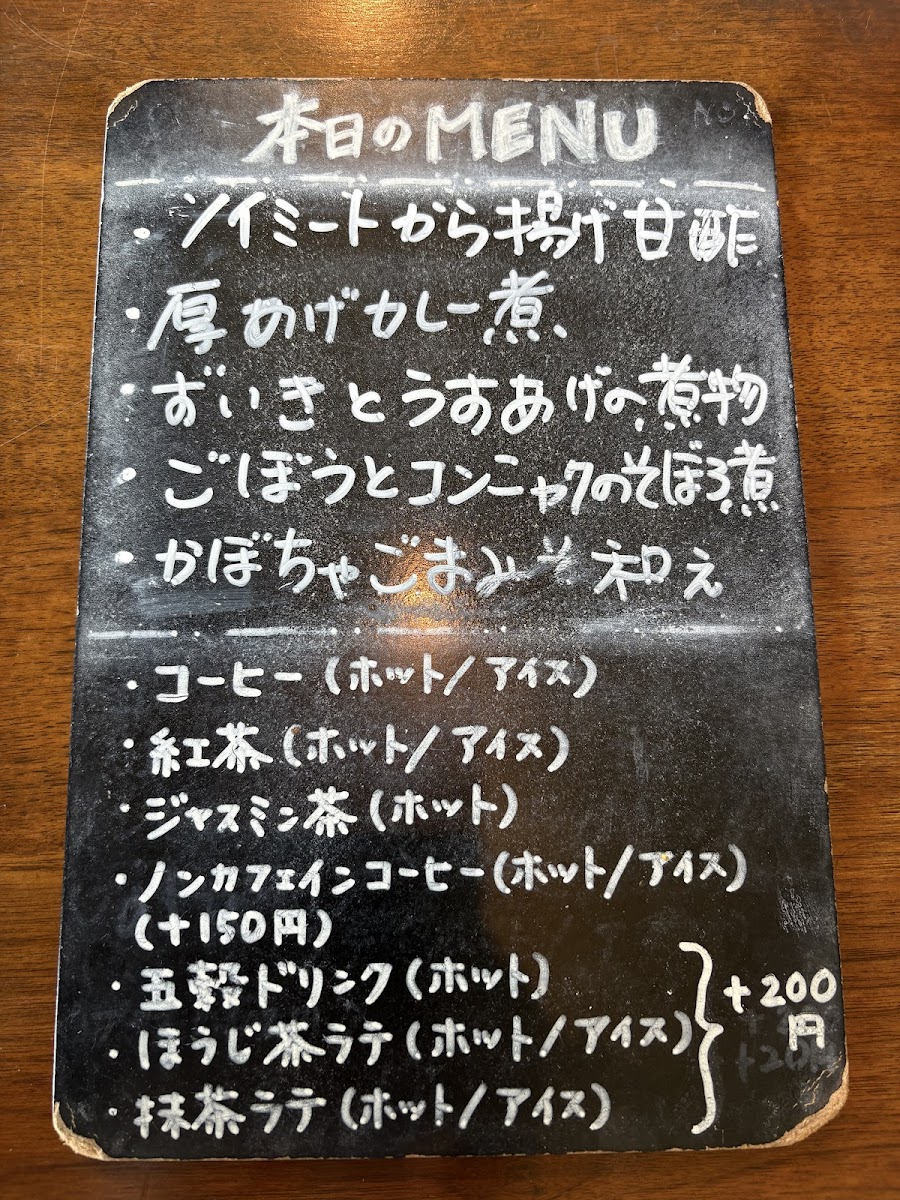 本日のMENU
・ソイミートから揚げ甘酢
・厚あげカレー煮
・ずいきとうすあげの煮物
・ごぼうとコンニャクのそぼろ煮
・かぼちゃごまみそ和え
・コーヒー(ホット/アイス)
・紅茶(ホット/アイス)
・ジャスミン茶(ホット)
・ノンカフェインコーヒー(ホット/アイス)
(+150円)
・五穀ドリンク(ホット)
・ほうじ茶ラテ(ホット/アイス)
・抹茶ラテ(ホット/アイス)
+200
円